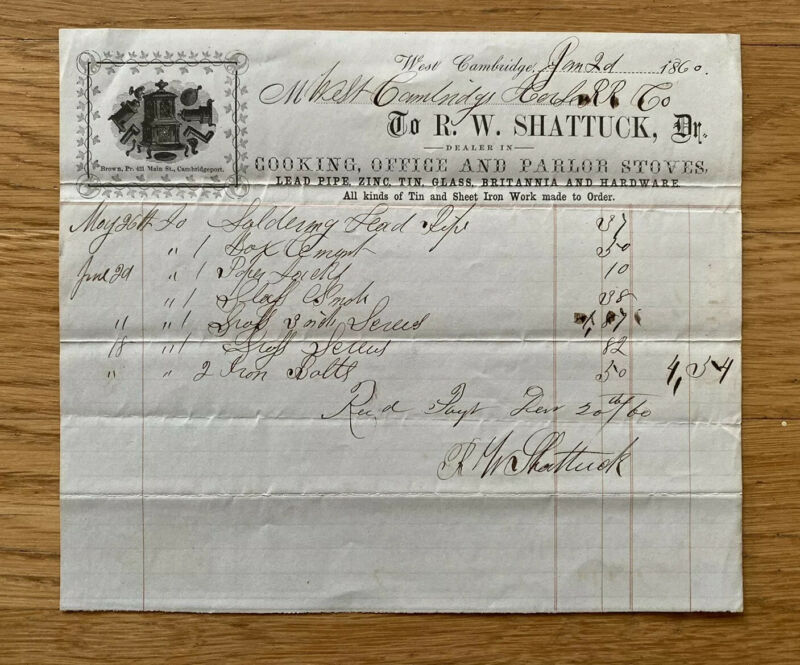 West Cambridge, Jan 2d 1860.
M West Cambridge Horse RR Co
To R. W. SHATTUCK, Dr.
DEALER IN
COOKING, OFFICE AND PARLOR STOVES,
LEAD PIPE, ZINC, TIN, GLASS, BRITANNIA AND HARDWARE.
All kinds of Tin and Sheet Iron Work made to Order.
Brown, Pr. 421 Main St., Cambridgeport.
May 26th To Soldering Lead Pipe 37
" 1 Box Cement 50
June 2d " 1 Paper Tacks 10
" 1 38
" " 1 Gross 3 inch Screws 1,87
18 " 1 Gross Screws 82
" " 2 Iron Bolts 50 4,54
Recd Payt 20th/60
R W Shattuck